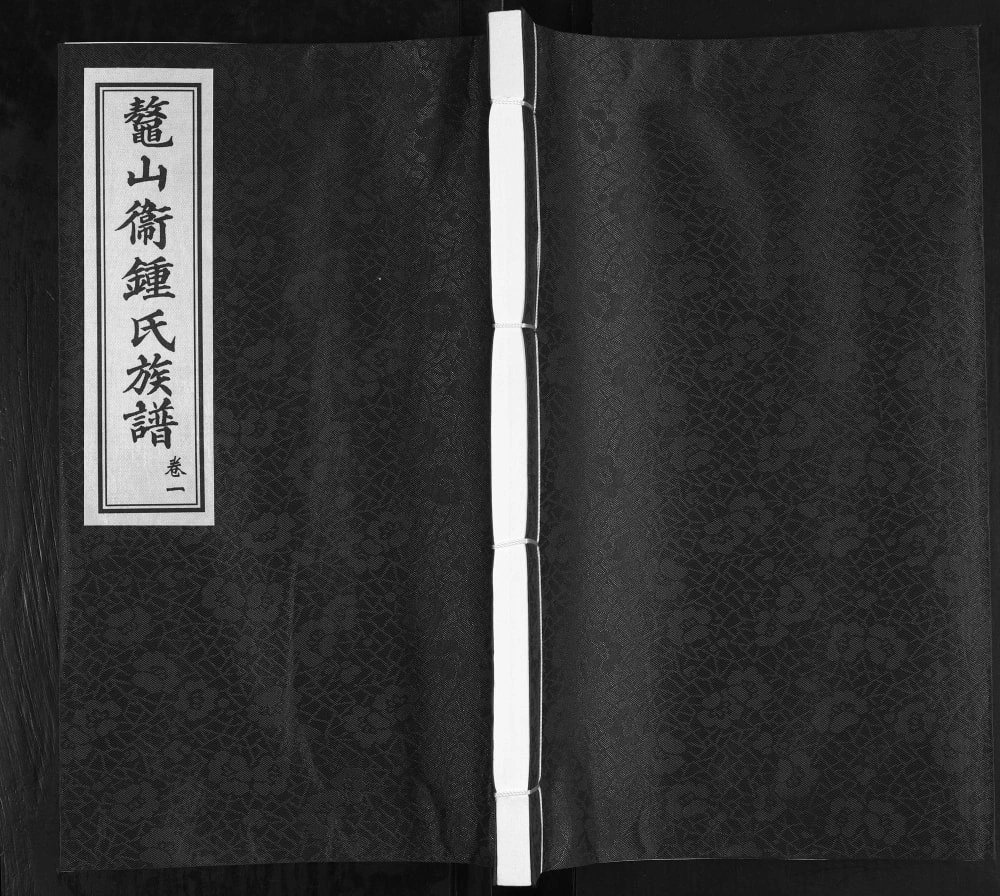 鼇山衞鍾氏族譜
卷一